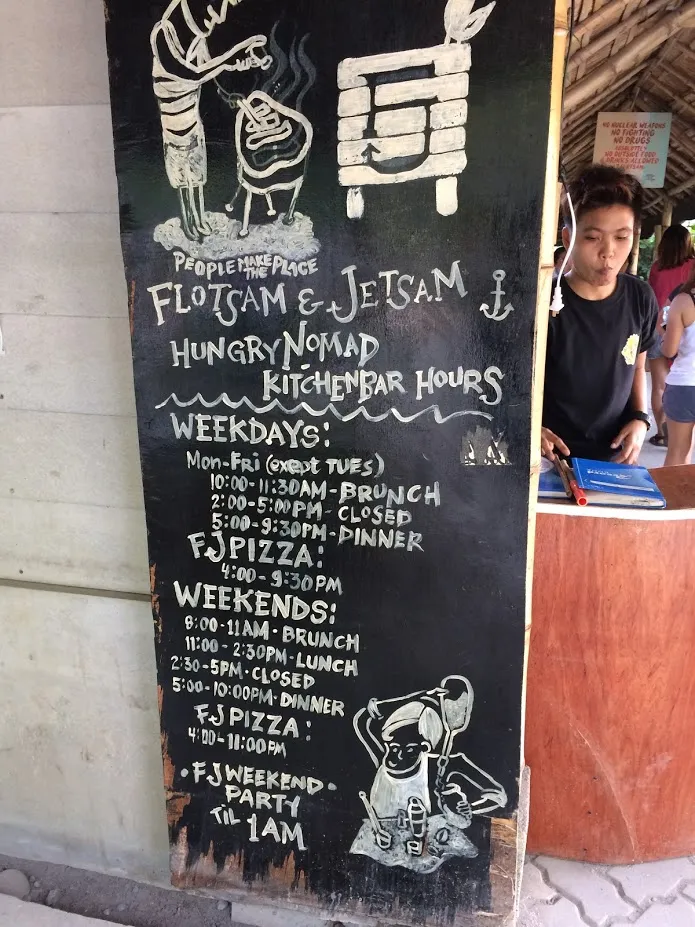 PEOPLE MAKE THE PLACE
FLOTSAM & JETSAM
HUNGRY NOMAD
KITCHENBAR HOURS
WEEKDAYS:
Mon-Fri (exept TUES)
10:00-11:30AM-BRUNCH
2:00-5:00PM-CLOSED
5:00-9:30PM-DINNER
FJ PIZZA:
4:00-9:30PM
WEEKENDS:
8:00-11AM-BRUNCH
11:00-2:30PM-LUNCH
2:30-5PM-CLOSED
5:00-10:00PM-DINNER
FJ PIZZA:
4:00-11:00PM
•FJ WEEKEND•
PARTY
TIL 1AM
NO NUCLEAR WEAPONS
NO FIGHTING
NO DRUGS
NO OUTSIDE FOOD
& DRINKS ALLOWED